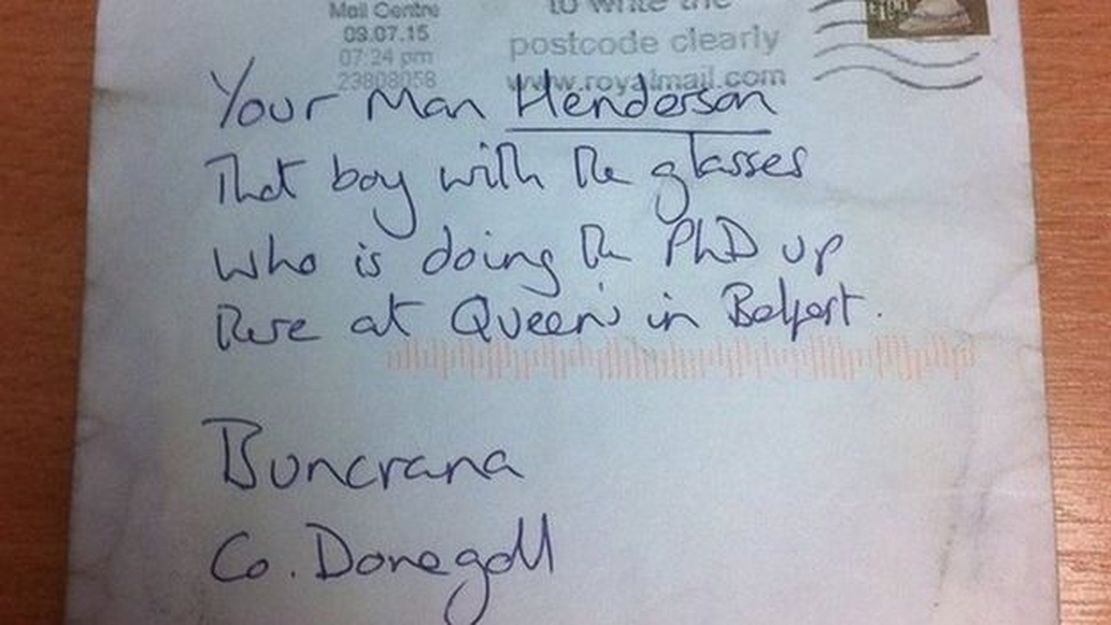 Mail Centre
03.07.15
07:24 pm
23808058
to write the
postcode clearly
www.royalmail.com
Your Man Henderson
That boy with the glasses
who is doing the PhD up
there at Queen's in Belfast.
Buncrana
Co. Donegall